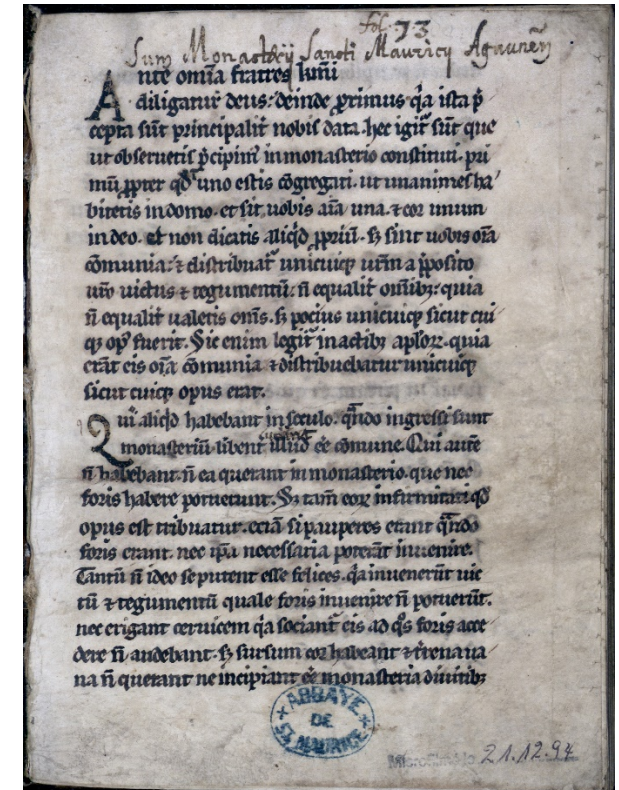 fol. 73
Sum Monasterij Sancti Mauricij Agaunen̄
Ante omīa fratres k̄mi
diligatur deus. deinde ꝓximus. q̄a ista p̄
cepta sūt principalit̄ nobis data. hec igit̄ sūt que
ut obseruetis p̄cipim᷒ in monasterio constituti. pri
mū ꝓpter qđ uno estis c̄ogregati. ut unanimes ha
bitetis in domo. et sit uobis aīa una. ⁊ cor unum
in deo. et non dicatis aliqd ꝓpriū. sꝫ sint uobis oīa
cōmunia. ⁊ distribuat̄ unicuiqꝫ ur̄m a p̄posito
ur̄o uictus ⁊ tegumentū. n̄ equalit̄ om̄ibꝫ. quia
n̄ equalit̄ ualetis om̄s. sꝫ pocius unicuiqꝫ sicut cui
qꝫ op᷒ fuerit. Sic enim legit̄ in actibꝫ aplōꝝ. quia
erāt eis oīa cōmunia ⁊ distribuebatur unicuiqꝫ
sicut cuiqꝫ opus erat.
Qui aliqd habebant in seculo. qn̄do ingressi sunt
monasteriū. libent̄ illud eē cōmune. Qui autē
n̄ habebant. n̄ ea querant in monasterio. que nec
foris habere potuerunt. Sꝫ tam̄ eoꝝ infirmitati qđ
opus est tribuatur. eciā si pauperes erant qn̄do
foris erant. nec ip̄a necessaria poterāt inuenire.
Tantū n̄ ideo se putent esse felices. q̄a inuenerūt uic
tū ⁊ tegumentū quale foris inuenire n̄ potuerūt.
nec erigant ceruicem q̄a sociant̄ eis ad q̄s foris acce
dere n̄ audebant. sꝫ sursum cor habeant ⁊ t̄rena ua
na n̄ querant ne incipiant eē monasteria diuitibꝫ
ABBAYE
DE
ST. MAURICE
21.12.94